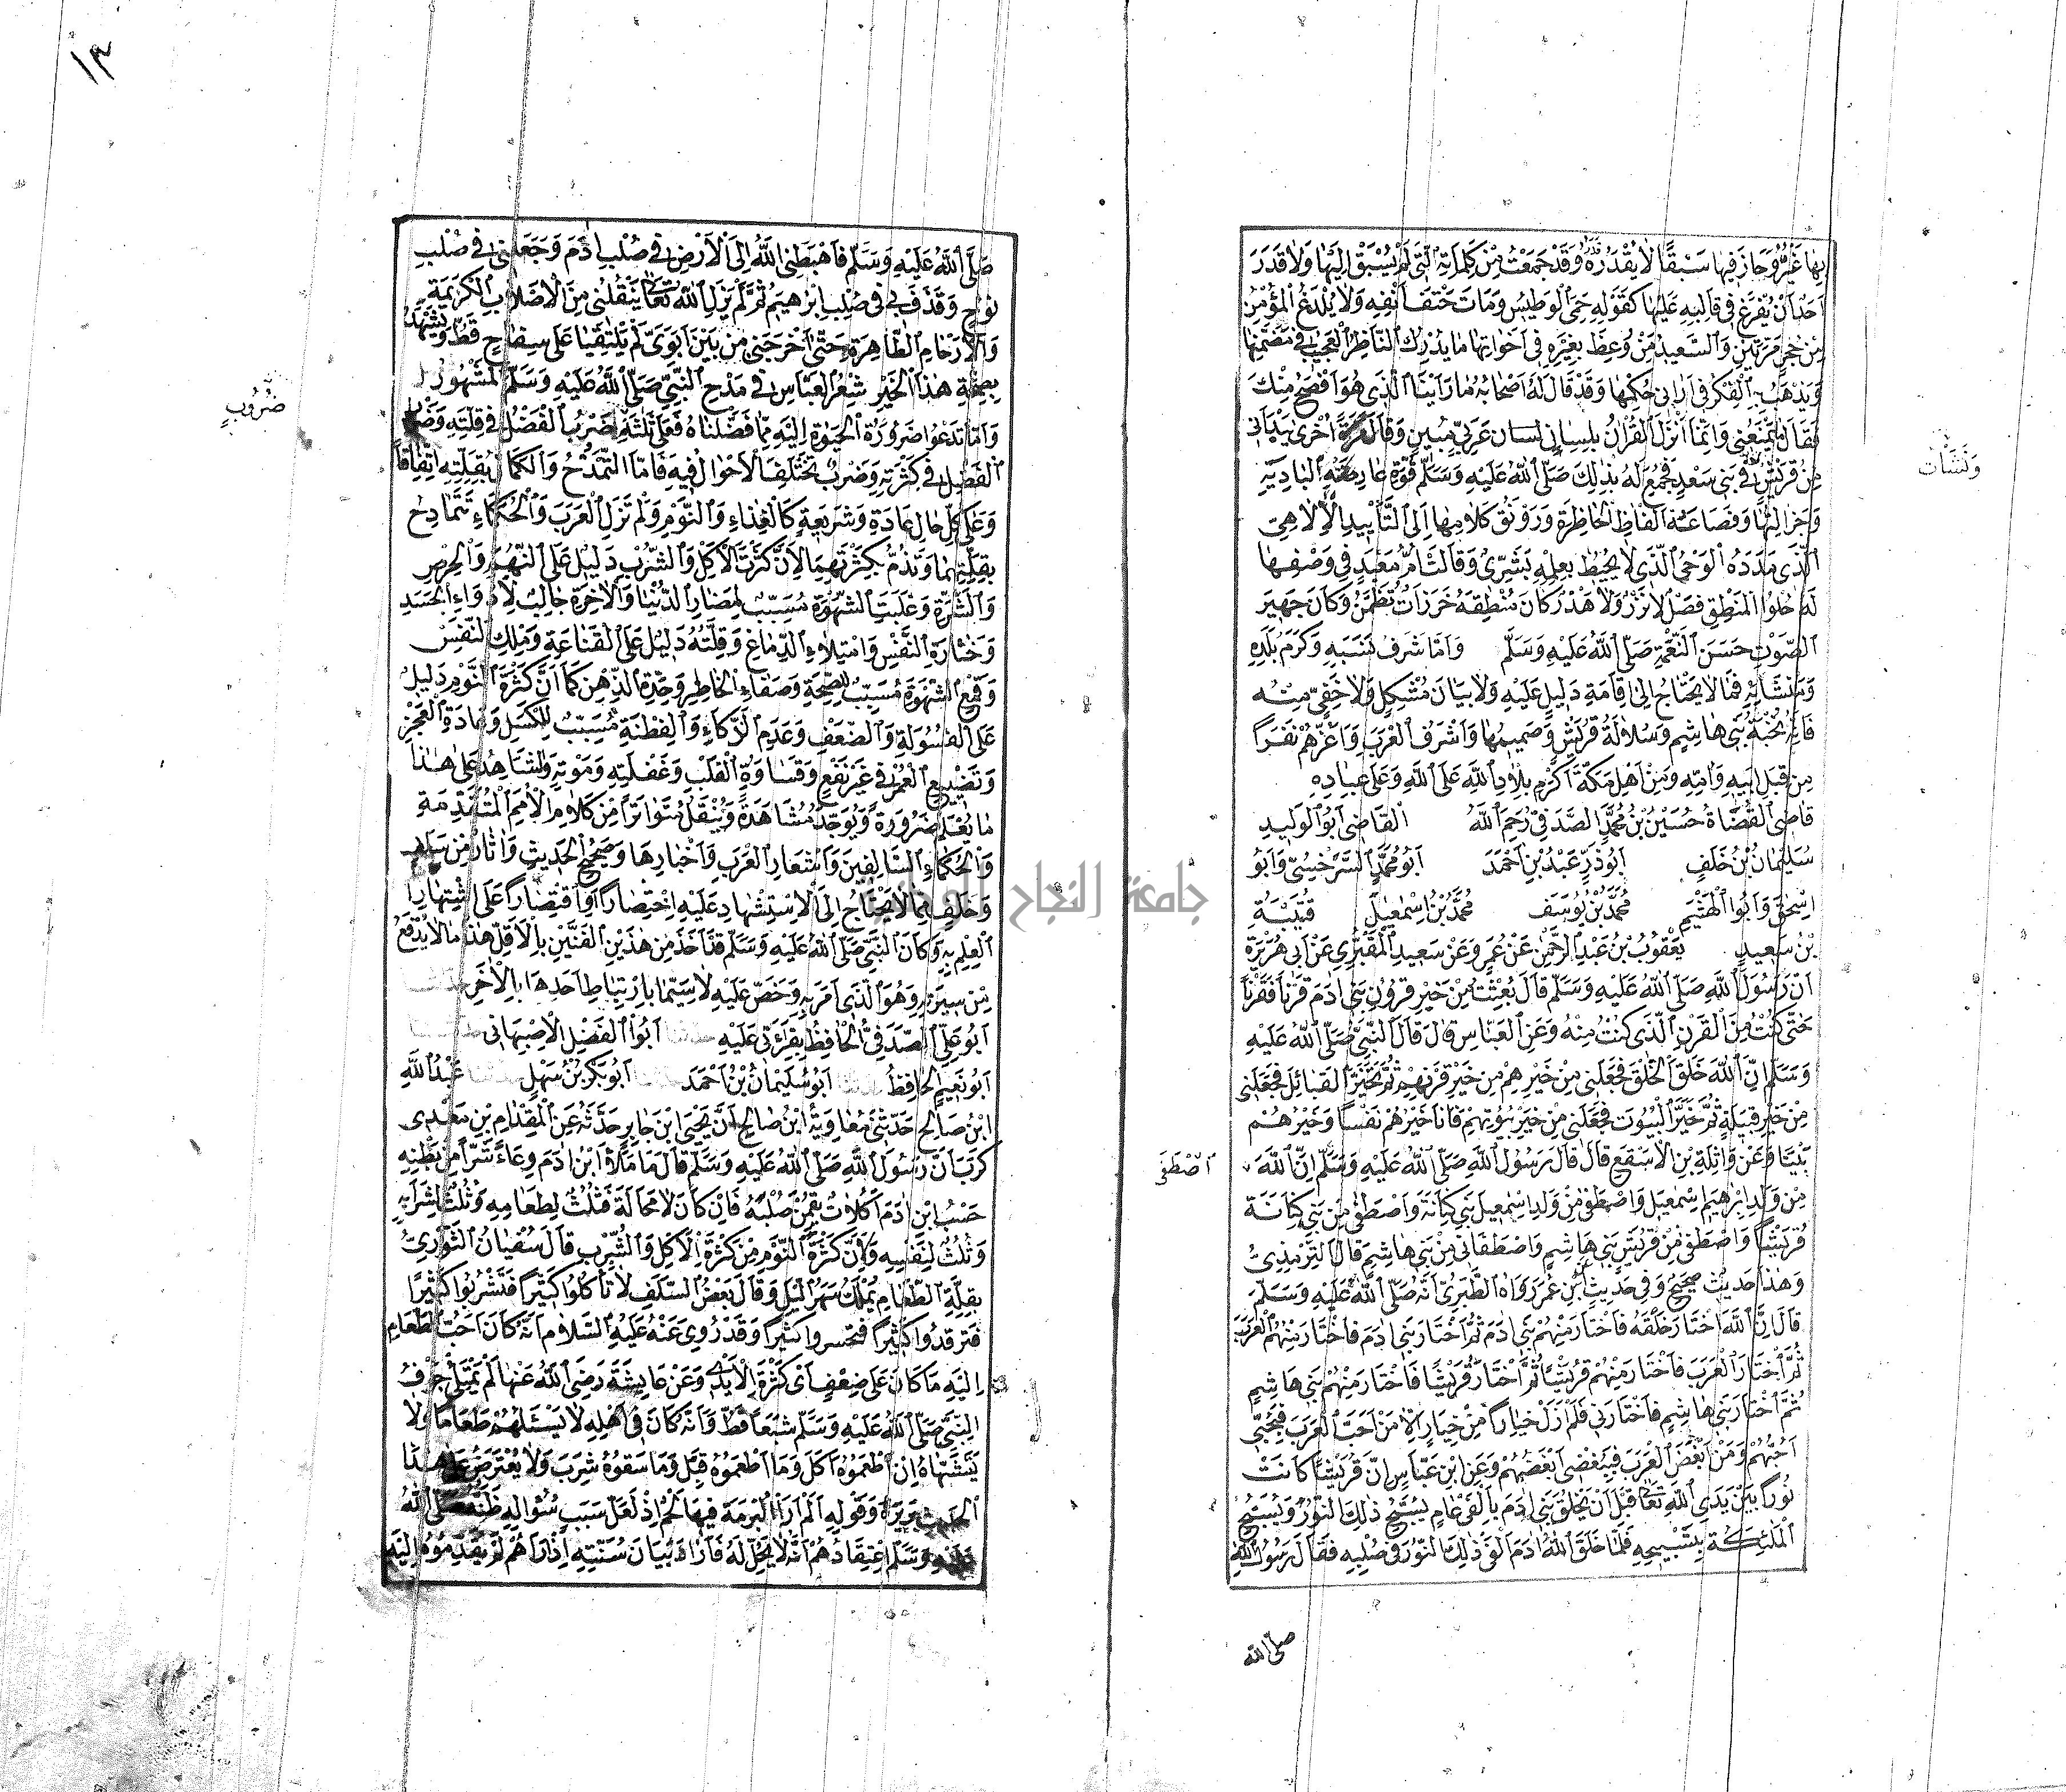 ١٣
بِهَا غَيْرُهُ وَحَازَ فِيهَا سَبْقًا لَا يُقْدَرُ قَدْرُهُ وَقَدْ جَمَعْتُ مِنْ كَلِمَاتِهِ الَّتِي لَمْ يُسْبَقْ إِلَيْهَا وَلَا قَدَرَ
أَحَدٌ أَنْ يُفْرِغَ فِي قَالَبِهِ عَلَيْهَا كَقَوْلِهِ حَمِيَ الْوَطِيسُ وَمَاتَ حَتْفَ أَنْفِهِ وَلَا يُلْدَغُ الْمُؤْمِنُ
مِنْ جُحْرٍ مَرَّتَيْنِ وَالسَّعِيدُ مَنْ وُعِظَ بِغَيْرِهِ فِي أَخَوَاتِهَا مَا يُدْرِكُ النَّاظِرُ الْعَجَبَ فِي مُضَمَّنِهَا
وَيَذْهَبُ بِهِ الْفِكْرُ فِي أَدَانِي حِكَمِهَا وَقَدْ قَالَ لَهُ أَصْحَابُهُ مَا رَأَيْنَا الَّذِي هُوَ أَفْصَحُ مِنْكَ
فَقَالَ مَا يَمْنَعُنِي وَإِنَّمَا أُنْزِلَ الْقُرْآنُ بِلِسَانِي لِسَانٍ عَرَبِيٍّ مُبِينٍ وَقَالَ مَرَّةً أُخْرَى بَيْدَ أَنِّي
مِنْ قُرَيْشٍ وَنَشَأْتُ فِي بَنِي سَعْدٍ فَجُمِعَ لَهُ بِذَلِكَ صَلَّى اللهُ عَلَيْهِ وَسَلَّمَ قُوَّةُ عَارِضَةِ الْبَادِيَةِ
وَجَزَالَتُهَا وَفَصَاعَةُ أَلْفَاظِ الْحَاضِرَةِ وَرَوْنَقُ كَلَامِهَا إِلَى التَّأْيِيدِ الْإِلَاهِيِّ
الَّذِي مَدَدُهُ الْوَحْيُ الَّذِي لَا يُحِيطُ بِعِلْمِهِ بَشَرِيٌّ وَقَالَتْ أُمُّ مَعْبَدٍ فِي وَصْفِهَا
لَهُ حُلْوُ الْمَنْطِقِ فَصْلٌ لَا نَزْرٌ وَلَا هَذْرٌ كَانَ مَنْطِقَهُ خَرَزَاتٌ نُظِمْنَ وَكَانَ جَهِيرَ
الصَّوْتِ حَسَنَ النَّغْمَةِ صَلَّى اللهُ عَلَيْهِ وَسَلَّمَ وَأَمَّا شَرَفُ نَسَبِهِ وَكَرَمُ بَلَدِهِ
وَمَنْشَائِهِ فَمَا لَا يَحْتَاجُ إِلَى إِقَامَةِ دَلِيلٍ عَلَيْهِ وَلَا بَيَانِ مُشْكِلٍ وَلَا خَفِيٍّ مِنْهُ
فَإِنَّهُ نُخْبَةُ بَنِي هَاشِمٍ وَسُلَالَةُ قُرَيْشٍ وَصَمِيمُهَا وَأَشْرَفُ الْعَرَبِ وَأَعَزُّهُمْ نَفَرًا
مِنْ قِبَلِ أَبِيهِ وَأُمِّهِ وَمِنْ أَهْلِ مَكَّةَ أَكْرَمِ بِلَادِ اللهِ عَلَى اللهِ وَعَلَى عِبَادِهِ
قَاضِي الْقُضَاةُ حُسَيْنُ بْنُ مُحَمَّدٍ الصَّدَفِيُّ رَحِمَهُ اللهُ الْقَاضِي أَبُو الْوَلِيدِ
سُلَيْمَانُ بْنُ خَلَفٍ أَبُو ذَرٍّ عَبْدُ بْنُ أَحْمَدَ أَبُو مُحَمَّدٍ السَّرَخْسِيُّ وَأَبُو
إِسْحَقَ وَأَبُو الْهَيْثَمِ مُحَمَّدُ بْنُ يُوسَفَ مُحَمَّدُ بْنُ إِسْمَعِيلَ قُتَيْبَةُ
بْنُ سَعِيدٍ يَعْقُوبُ بْنُ عَبْدِ الرَّحْمَنِ عَنْ عُمَرَ وَعَنْ سَعِيدٍ الْمَقْبُرِيِّ عَنْ أَبِي هُرَيْرَةَ
أَنَّ رَسُولَ اللهِ صَلَّى اللهُ عَلَيْهِ وَسَلَّمَ قَالَ بُعِثْتُ مِنْ خَيْرِ قُرُونِ بَنِي آدَمَ قَرْنًا فَقَرْنًا
حَتَّى كُنْتُ مِنَ الْقَرْنِ الَّذِي كُنْتُ مِنْهُ وَعَنِ الْعَبَّاسِ قَالَ قَالَ النَّبِيُّ صَلَّى اللهُ عَلَيْهِ
وَسَلَّمَ إِنَّ اللهَ خَلَقَ الْخَلْقَ فَجَعَلَنِي مِنْ خَيْرِهِمْ مِنْ خَيْرِ قَرْنِهِمْ ثُمَّ تَخَيَّرَ الْقَبَائِلَ فَجَعَلَنِي
مِنْ خَيْرِ قَبِيلَةٍ ثُمَّ خَيَّرَ الْبُيُوتَ فَجَعَلَنِي مِنْ خَيْرِ بُيُوتِهِمْ فَأَنَا خَيْرُهُمْ نَفْسًا وَخَيْرُهُمْ
بَيْتًا وَعَنْ وَاثِلَةَ بْنِ الْأَسْقَعِ قَالَ قَالَ رَسُولُ اللهِ صَلَّى اللهُ عَلَيْهِ وَسَلَّمَ إِنَّ اللهَ اصْطَفَى
مِنْ وَلَدِ إِبْرَهِيمَ إِسْمَعِيلَ وَاصْطَفَى مِنْ وَلَدِ إِسْمَعِيلَ بَنِي كِنَانَةَ وَاصْطَفَى مِنْ بَنِي كِنَانَةَ
قُرَيْشًا وَاصْطَفَى مِنْ قُرَيْشٍ بَنِي هَاشِمٍ وَاصْطَفَانِي مِنْ بَنِي هَاشِمٍ قَالَ التِّرْمِذِيُّ
وَهَذَا حَدِيثٌ صَحِيحٌ وَفِي حَدِيثِ ابْنِ عُمَرَ رَوَاهُ الطَّبَرِيُّ أَنَّهُ صَلَّى اللهُ عَلَيْهِ وَسَلَّمَ
قَالَ إِنَّ اللهَ اخْتَارَ خَلْقَهُ فَاخْتَارَ مِنْهُمْ بَنِي آدَمَ ثُمَّ اخْتَارَ بَنِي آدَمَ فَاخْتَارَ مِنْهُمُ الْعَرَبَ
ثُمَّ اخْتَارَ الْعَرَبَ فَاخْتَارَ مِنْهُمْ قُرَيْشًا ثُمَّ اخْتَارَ قُرَيْشًا فَاخْتَارَ مِنْهُمْ بَنِي هَاشِمٍ
ثُمَّ اخْتَارَ بَنِي هَاشِمٍ فَاخْتَارَنِي فَلَمْ أَزَلْ خِيَارًا مِنْ خِيَارٍ أَلَا مَنْ أَحَبَّ الْعَرَبَ فَبِحُبِّي
أَحَبَّهُمْ وَمَنْ أَبْغَضَ الْعَرَبَ فَبِبُغْضِي أَبْغَضَهُمْ وَعَنِ ابْنِ عَبَّاسٍ إِنَّ قُرَيْشًا كَانَتْ
نُورًا بَيْنَ يَدَيِ اللهِ تَعَالَى قَبْلَ أَنْ يَخْلُقَ بَنِي آدَمَ بِأَلْفَيْ عَامٍ يُسَبِّحُ ذَلِكَ النُّورُ وَيُسَبِّحُ
الْمَلَئِكَةُ بِتَسْبِيحِهِ فَلَمَّا خَلَقَ اللهُ آدَمَ أَلْقَى ذَلِكَ النُّورَ فِي صُلْبِهِ فَقَالَ رَسُولُ اللهِ
صلى الله
صَلَّى اللهُ عَلَيْهِ وَسَلَّمَ فَأَهْبَطَنِي اللهُ إِلَى الْأَرْضِ فِي صُلْبِ آدَمَ وَجَعَلَنِي فِي صُلْبِ
نُوحٍ وَقَذَفَ بِي فِي صُلْبِ إِبْرَهِيمَ ثُمَّ لَمْ يَزَلِ اللهُ تَعَالَى يَنْقُلُنِي مِنَ الْأَصْلَابِ الْكَرِيمَةِ
وَالْأَرْحَامِ الطَّاهِرَةِ حَتَّى أَخْرَجَنِي مِنْ بَيْنِ أَبَوَيَّ لَمْ يَلْتَقِيَا عَلَى سِفَاحٍ قَطُّ وَيَشْهَدُ
بِصِحَّةِ هَذَا الْخَبَرِ شِعْرُ الْعَبَّاسِ فِي مَدْحِ النَّبِيِّ صَلَّى اللهُ عَلَيْهِ وَسَلَّمَ الْمَشْهُورُ
وَأَمَّا تَدْعُوا ضَرُورَةُ الْحَيَوةِ إِلَيْهِ مِمَّا فَصَّلْنَاهُ فَعَلَى ثَلَثَةِ ضُرُوبٍ ضَرْبُ الْفَضْلُ فِي قِلَّتِهِ وَضَرْبُ
الْفَضْلُ فِي كَثْرَتِهِ وَضَرْبٌ تَخْتَلِفُ الْأَحْوَالُ فِيهِ فَأَمَّا التَّمَدُّحُ وَالْكَمَالُ بِقِلَّتِهِ اتِّفَاقًا
وَعَلَى كُلِّ حَالٍ عَادَةٍ وَشَرِيعَةٍ كَالْغِذَاءِ وَالنَّوْمِ وَلَمْ تَزَلِ الْعَرَبُ وَالْحُكَمَاءُ تَتَمَادَحُ
بِقِلَّتِهِمَا وَتَذُمُّ بِكَثْرَتِهِمَا لِأَنَّ كَثْرَةَ الْأَكْلِ وَالشُّرْبِ دَلِيلٌ عَلَى النَّهَمِ وَالْحِرْصِ
وَالشَّرَهِ وَغَلَبَةِ الشَّهْوَةِ مُسَبِّبٌ لِمَضَارِّ الدُّنْيَا وَالْآخِرَةِ جَالِبٌ لِأَدْوَاءِ الْجَسَدِ
وَخَثَارَةِ النَّفْسِ وَامْتِلَاءِ الدِّمَاغِ وَقِلَّتُهُ دَلِيلٌ عَلَى الْقَنَاعَةِ وَمِلْكِ النَّفْسِ
وَقَمْعُ الشَّهْوَةِ مُسَبِّبٌ لِلصِّحَّةِ وَصَفَاءِ الْخَاطِرِ وَحِدَّةِ الذِّهْنِ كَمَا أَنَّ كَثْرَةَ النَّوْمِ دَلِيلٌ
عَلَى الْفُسُولَةِ وَالضَّعْفِ وَعَدَمِ الذَّكَاءِ وَالْفِطْنَةِ مُسَبِّبٌ لِلْكَسَلِ وَعَادَةِ الْعَجْزِ
وَتَضْيِيعِ الْعُمْرِ فِي غَيْرِ نَفْعٍ وَقَسَاوَةِ الْقَلْبِ وَغَفْلَتِهِ وَمَوْتِهِ وَالشَّاهِدُ عَلَى هَذَا
مَا يُعْلَمُ ضَرُورَةً وَيُوجَدُ مُشَاهَدَةً وَيُنْقَلُ مُتَوَاتِرًا مِنْ كَلَامِ الْأُمَمِ الْمُتَقَدِّمَةِ
وَالْحُكَمَاءِ السَّالِفِينَ وَأَشْعَارِ الْعَرَبِ وَأَخْبَارِهَا وَصَحِيحِ الْحَدِيثِ وَآثَارِ مَنْ سَلَفَ
وَخَلَفَ مِمَّا لَا يَحْتَاجُ إِلَى الِاسْتِشْهَادِ عَلَيْهِ اخْتِصَارًا وَاقْتِصَارًا عَلَى اشْتِهَارِ
الْعِلْمِ بِهِ وَكَانَ النَّبِيُّ صَلَّى اللهُ عَلَيْهِ وَسَلَّمَ قَدْ أَخَذَ مِنْ هَذَيْنِ الْفَنَّيْنِ بِالْأَقَلِّ هَذَا مَا لَا يُدْفَعُ
مِنْ سِيرَتِهِ وَهُوَ الَّذِي أَمَرَ بِهِ وَحَضَّ عَلَيْهِ لَا سِيَّمَا بِارْتِبَاطِ أَحَدِهَا بِالْآخَرِ
أَبُو عَلِيٍّ الصَّدَفِيُّ الْحَافِظُ بِقِرَاءَتِي عَلَيْهِ أَبُو الْفَضْلِ الْأَصْبِهَانِي
أَبُو نَعِيمٍ الْحَافِظُ أَبُو سُلَيْمَانُ بْنُ أَحْمَدَ أَبُو بَكْرِ بْنُ سَهْلٍ عَبْدُ اللهِ
ابْنُ صَالِحٍ حَدَّثَنِي مُعَاوِيَةُ ابْنُ صَالِحٍ أَنَّ يَحْيَى ابْنَ جَابِرٍ حَدَّثَهُ عَنِ الْمِقْدَامِ بْنِ مَعْدِي
كَرَبَ أَنَّ رَسُولَ اللهِ صَلَّى اللهُ عَلَيْهِ وَسَلَّمَ قَالَ مَا مَلَأَ ابْنُ آدَمَ وِعَاءً شَرًّا مِنْ بَطْنِهِ
حَسْبُ ابْنِ آدَمَ أُكُلَاتٌ يُقِمْنَ صُلْبَهُ فَإِنْ كَانَ لَا مَحَالَةَ فَثُلُثٌ لِطَعَامِهِ وَثُلُثٌ لِشَرَابِهِ
وَثُلُثٌ لِنَفَسِهِ وَلِأَنَّ كَثْرَةَ النَّوْمِ مِنْ كَثْرَةِ الْأَكْلِ وَالشُّرْبِ قَالَ سُفْيَانُ الثَّوْرِيُّ
بِقِلَّةِ الطَّعَامِ يُمْلَكُ سَهَرُ اللَّيْلِ وَقَالَ بَعْضُ السَّلَفِ لَا تَأْكُلُوا كَثِيرًا فَتَشْرَبُوا كَثِيرًا
فَتَرْقُدُوا كَثِيرًا فَتَخْسَرُوا كَثِيرًا وَقَدْ رُوِيَ عَنْهُ عَلَيْهِ السَّلَامُ أَنَّهُ كَانَ أَحَبَّ الطَّعَامِ
إِلَيْهِ مَا كَانَ عَلَى ضَعْفٍ أَيْ كَثْرَةِ الْأَيْدِي وَعَنْ عَايِشَةَ رَضِيَ اللهُ عَنْهَا لَمْ يَمْتَلِئْ جَوْفُ
النَّبِيِّ صَلَّى اللهُ عَلَيْهِ وَسَلَّمَ شَبَعًا قَطُّ وَأَنَّهُ كَانَ فِي أَهْلِهِ لَا يَسْئَلُهُمْ طَعَامًا وَلَا
يَتَشَهَّاهُ إِنْ أَطْعَمُوهُ أَكَلَ وَمَا أَطْعَمُوهُ قَبِلَ وَمَا سَقَوْهُ شَرِبَ وَلَا يُعْتَرَضُ عَلَى هَذَا
الْحَدِيثِ بَرِيرَةَ وَقَوْلِهِ أَلَمْ أَرَ الْبُرْمَةَ فِيهَا لَحْمٌ إِذْ لَعَلَّ سَبَبَ سُؤَالِهِ ظَنُّهُ صَلَّى اللهُ
عَلَيْهِ وَسَلَّمَ اعْتِقَادُهُمْ أَنَّهُ لَا يَحِلُّ لَهُ فَأَرَادَ بَيَانَ سُنَّتِهِ إِذْ رَآهُمْ لَمْ يُقَدِّمُوهُ إِلَيْهِ
ضُرُوبٍ
وَنَشَأْتُ
اصْطَفَى
جامعة النجاح الوطنية